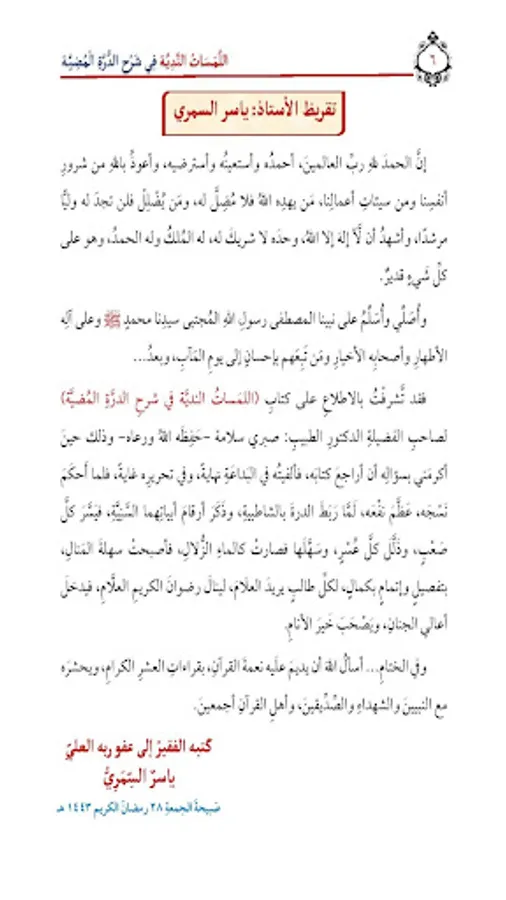 ٦
اللَّمَسَاتُ النَّدِيَّة فِي شَرْحِ الدُّرَّةِ الْمُضِيَّة
تقريظ الأستاذ: ياسر السمري
إنَّ الحمدَ للهِ ربِّ العالمينَ، أحمدُه وأستعينُه وأسترضيه، وأعوذُ باللهِ من شرورِ
أنفسِنا ومن سيئاتِ أعمالِنا، مَن يهدِه اللهُ فلا مُضِلَّ له، ومَن يُضْلِلْ فلن تجدَ له وليًّا
مرشدًا، وأشهدُ أن لَّا إلهَ إلا اللهُ، وحدَه لا شريكَ له، له المُلكُ وله الحمدُ، وهو على
كلِّ شَيءٍ قديرٌ.
وأُصَلِّي وأُسَلِّمُ على نبينا المصطفى رسولِ اللهِ المُجتبى سيدِنا محمدٍ ﷺ وعلى آلِه
الأطهارِ وأصحابِه الأخيارِ ومَن تبِعَهم بإحسانٍ إلى يومِ المآبِ، وبعدُ...
فقد تَّشرفْتُ بالاطلاعِ على كتابِ (اللمَساتُ النديَّة في شرحِ الدرَّةِ المُضيَّة)
لصاحبِ الفضيلةِ الدكتورِ الطبيبِ: صبري سلامة -حَفِظَه اللهُ ورعاه- وذلك حينَ
أكرمَني بسؤالِه أن أراجعَ كتابَه، فألفيتُه في البَداعةِ نهايةً، وفي تحريرِه غايةً، فلما أَحكَمَ
نَسْجَه، عَظَّمَ نفْعَه، لَمَّا رَبَطَ الدرةَ بالشاطبيةِ، وذَكَرَ أرقامَ أبياتِهما السَّنِيَّةِ، فيَسَّرَ كلَّ
صَعْبٍ، وذلَّل كلَّ عُسْرٍ، وسهَّلَها فصارتْ كالماءِ الزُّلالِ، فأصبحتْ سهلةَ المَنالِ،
بتفصيلٍ وإتمامٍ بكمالٍ، لكلِّ طالبٍ يريدُ العلَامَ، لينالَ رضوانَ الكريمِ العلَّامِ، فيدخلَ
أعالي الجنانِ، ويَصْحَبَ خَيرَ الأنامِ.
وفي الختامِ... أسألُ اللهَ أن يديمَ علَيه نعمةَ القرآنِ، بقراءاتِ العشرِ الكرامِ، ويحشرَه
مع النبيينَ والشهداءِ والصِّدِّيقينَ، وأهلِ القرآنِ أجمعينَ.
كتبه الفقيرُ إلى عفو ربه العليِّ
ياسرٌ السِّمَرِيُّ
صَبيحةَ الجمعةِ ٢٨ رمضانَ الكريم ١٤٤٣ هـ